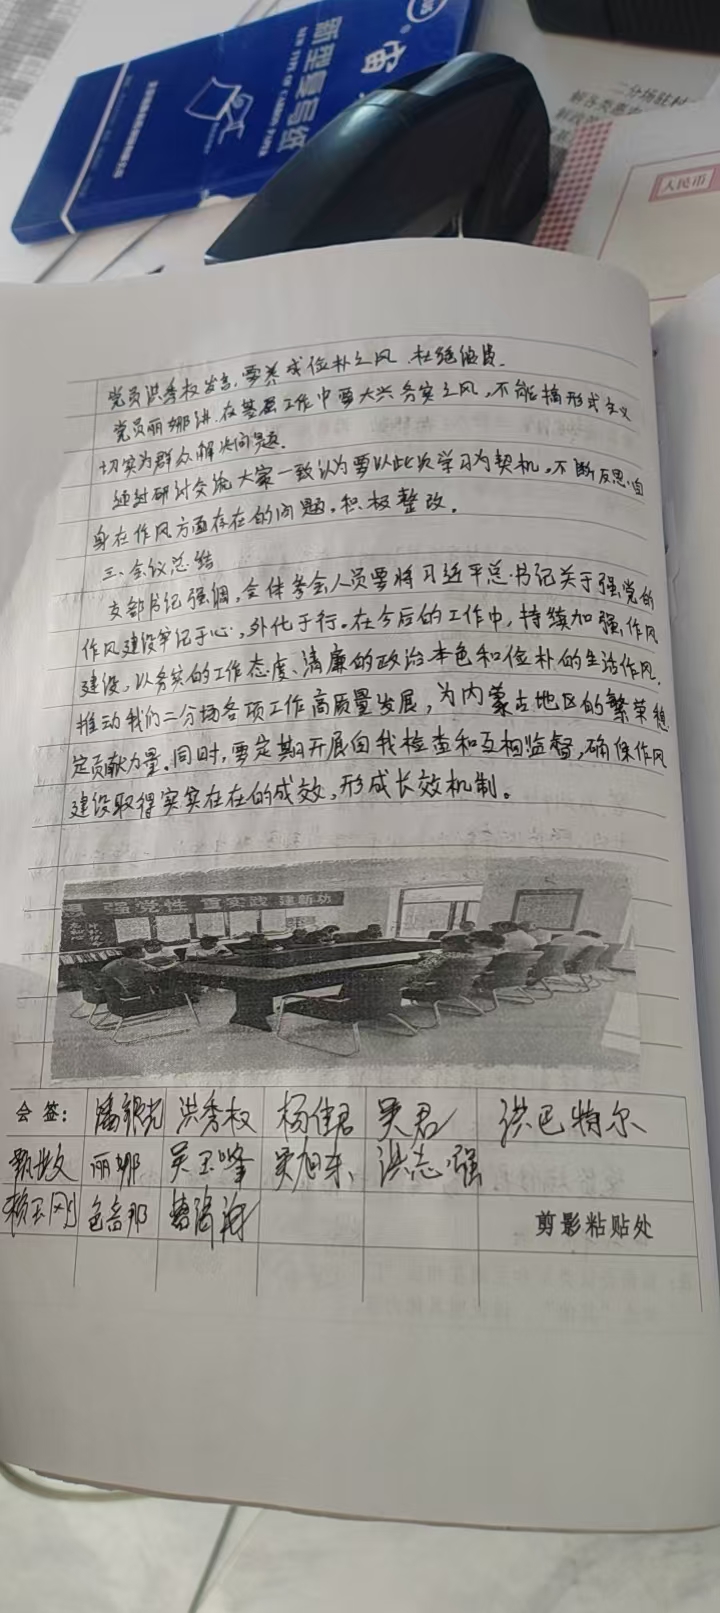 新型复写纸
NEW TYPE OF CARBON PAPER
二分场驻村
人民币
党员洪秀权发言,要养成俭朴之风,杜绝浪费.
党员丽娜讲.在基层工作中要大兴务实之风,不能搞形式主义
切实为群众解决问题.
经过研讨交流大家一致认为要以此次学习为契机,不断反思自
身在作风方面存在的问题,积极整改。
三、会议总结
支部书记强调,全体参会人员要将习近平总书记关于强党的
作风建设牢记于心,外化于行。在今后的工作中,持续加强作风
建设,以务实的工作态度、清廉的政治本色和俭朴的生活作风,
推动我们二分场各项工作高质量发展,为内蒙古地区的繁荣稳
定贡献力量.同时,要定期开展自我检查和互相监督,确保作风
建设取得实实在在的成效,形成长效机制。
强党性 重实践 建新功
会签: 洪秀权 杨佳君 吴君 洪巴特尔
丽娜 吴玉峰 洪志强
色音那
剪影粘贴处